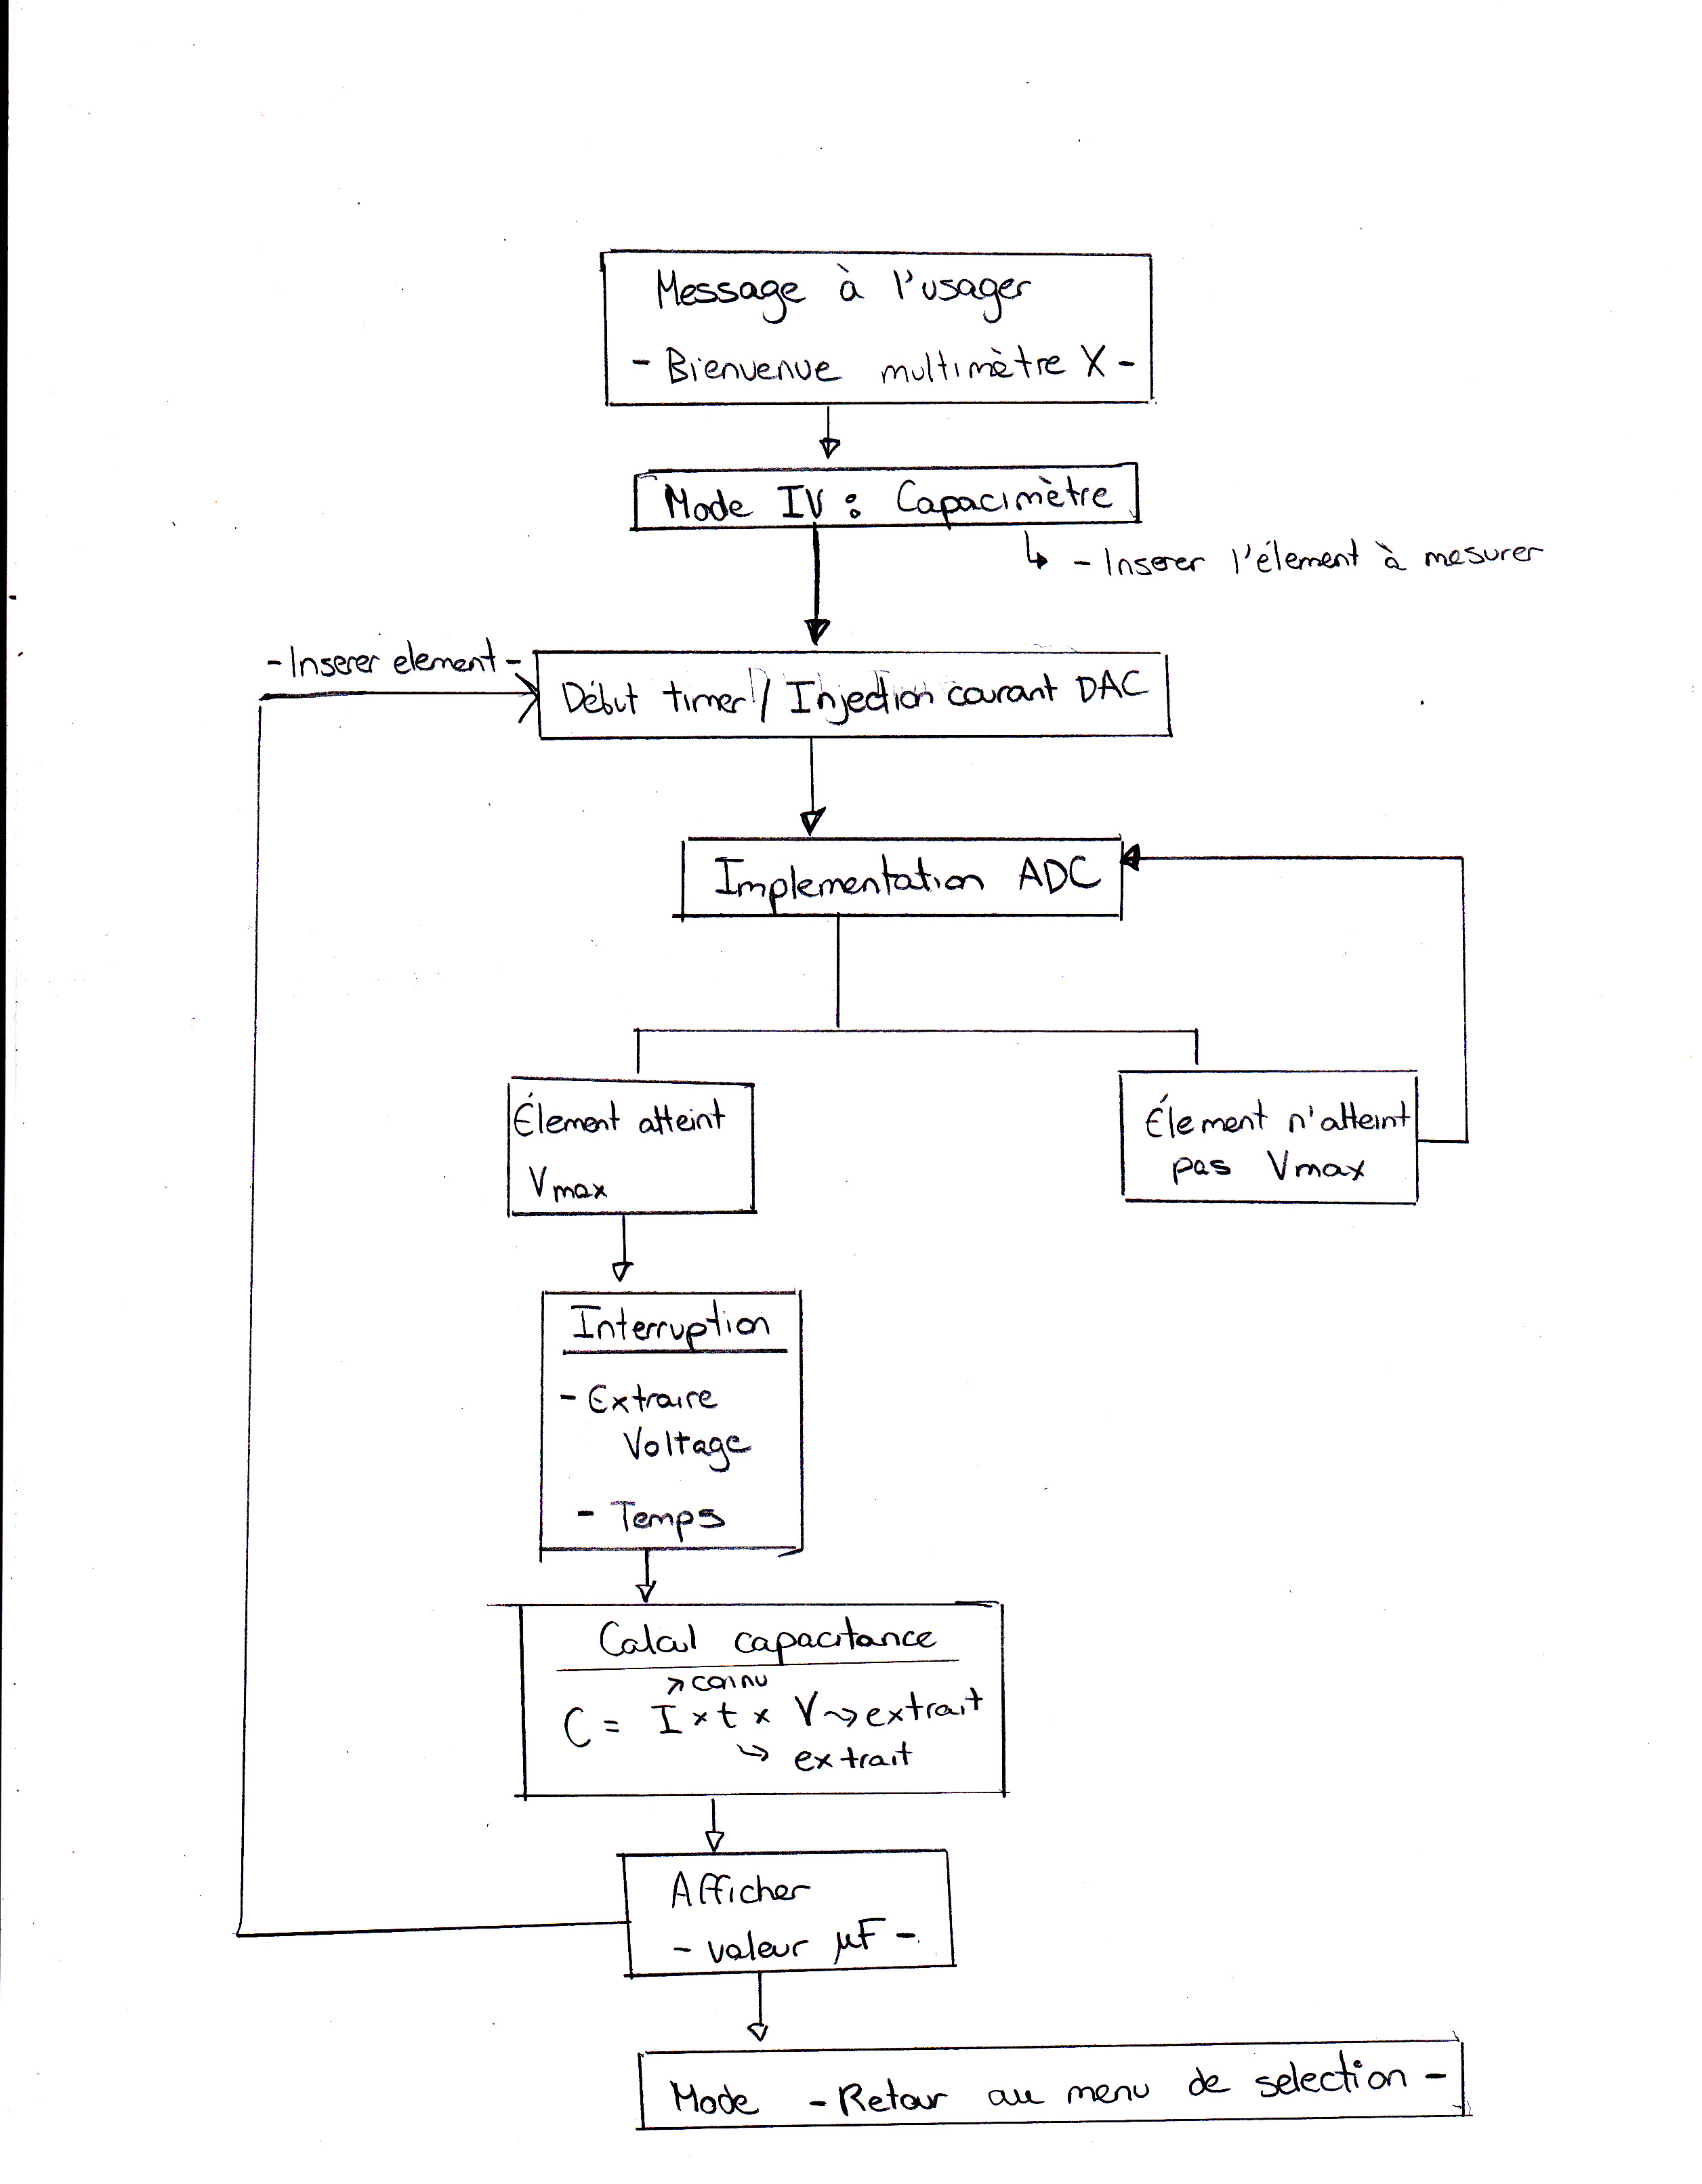 Message à l'usager
- Bienvenue multimètre X -
Mode IV : Capacimètre
↳ - Inserer l'élement à mesurer
- Inserer element -
Début timer / Injection courant DAC
Implementation ADC
Élement atteint
Vmax
Élement n'atteint
pas Vmax
Interruption
- Extraire
Voltage
- Temps
Calcul capacitance
↗ connu
C = I × t × V ⤳ extrait
↳ extrait
Afficher
- valeur µF -
Mode - Retour au menu de selection -